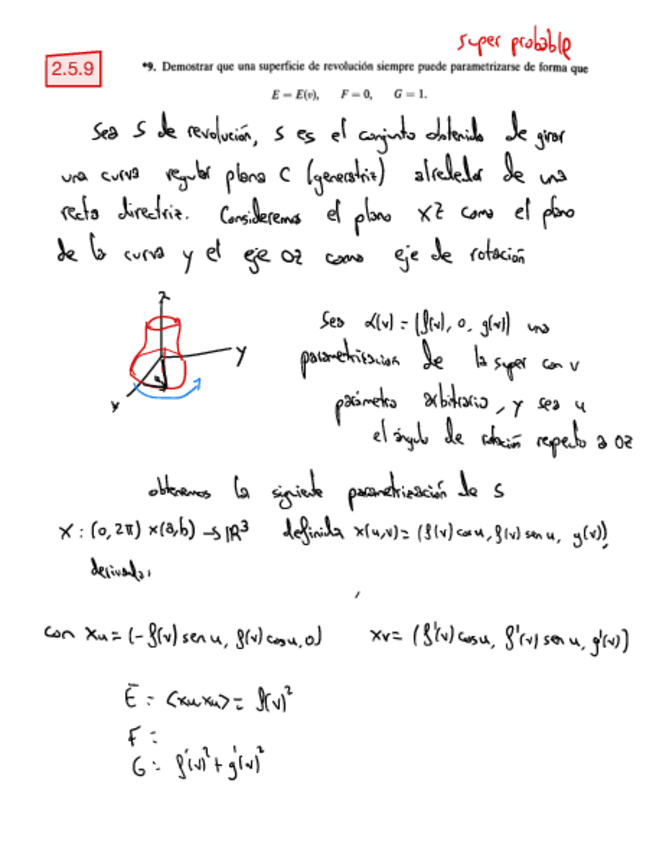 super probable
2.5.9
*9. Demostrar que una superficie de revolución siempre puede parametrizarse de forma que
E = E(v), F = 0, G = 1.
Sea S de revolución, S es el conjunto obtenido de girar
una curva regular plana C (generatriz) alrededor de una
recta directriz. Consideremos el plano XZ como el plano
de la curva y el eje OZ como eje de rotación
z
y
x
Sea α(v) = (f(v), 0, g(v)) una
parametrización de la super con v
parámetro arbitrario, y sea u
el ángulo de rotación respecto a OZ
obtenemos la siguiente parametrización de S
X : (0, 2π) x (a,b) → ℝ³ definida x(u,v) = (f(v) cos u, f(v) sen u, g(v)),
derivada,
con xu = (-f(v) sen u, f(v) cos u, 0) xv = (f'(v) cos u, f'(v) sen u, g'(v))
E = <xu xu> = f(v)²
F =
G = f'(v)² + g'(v)²